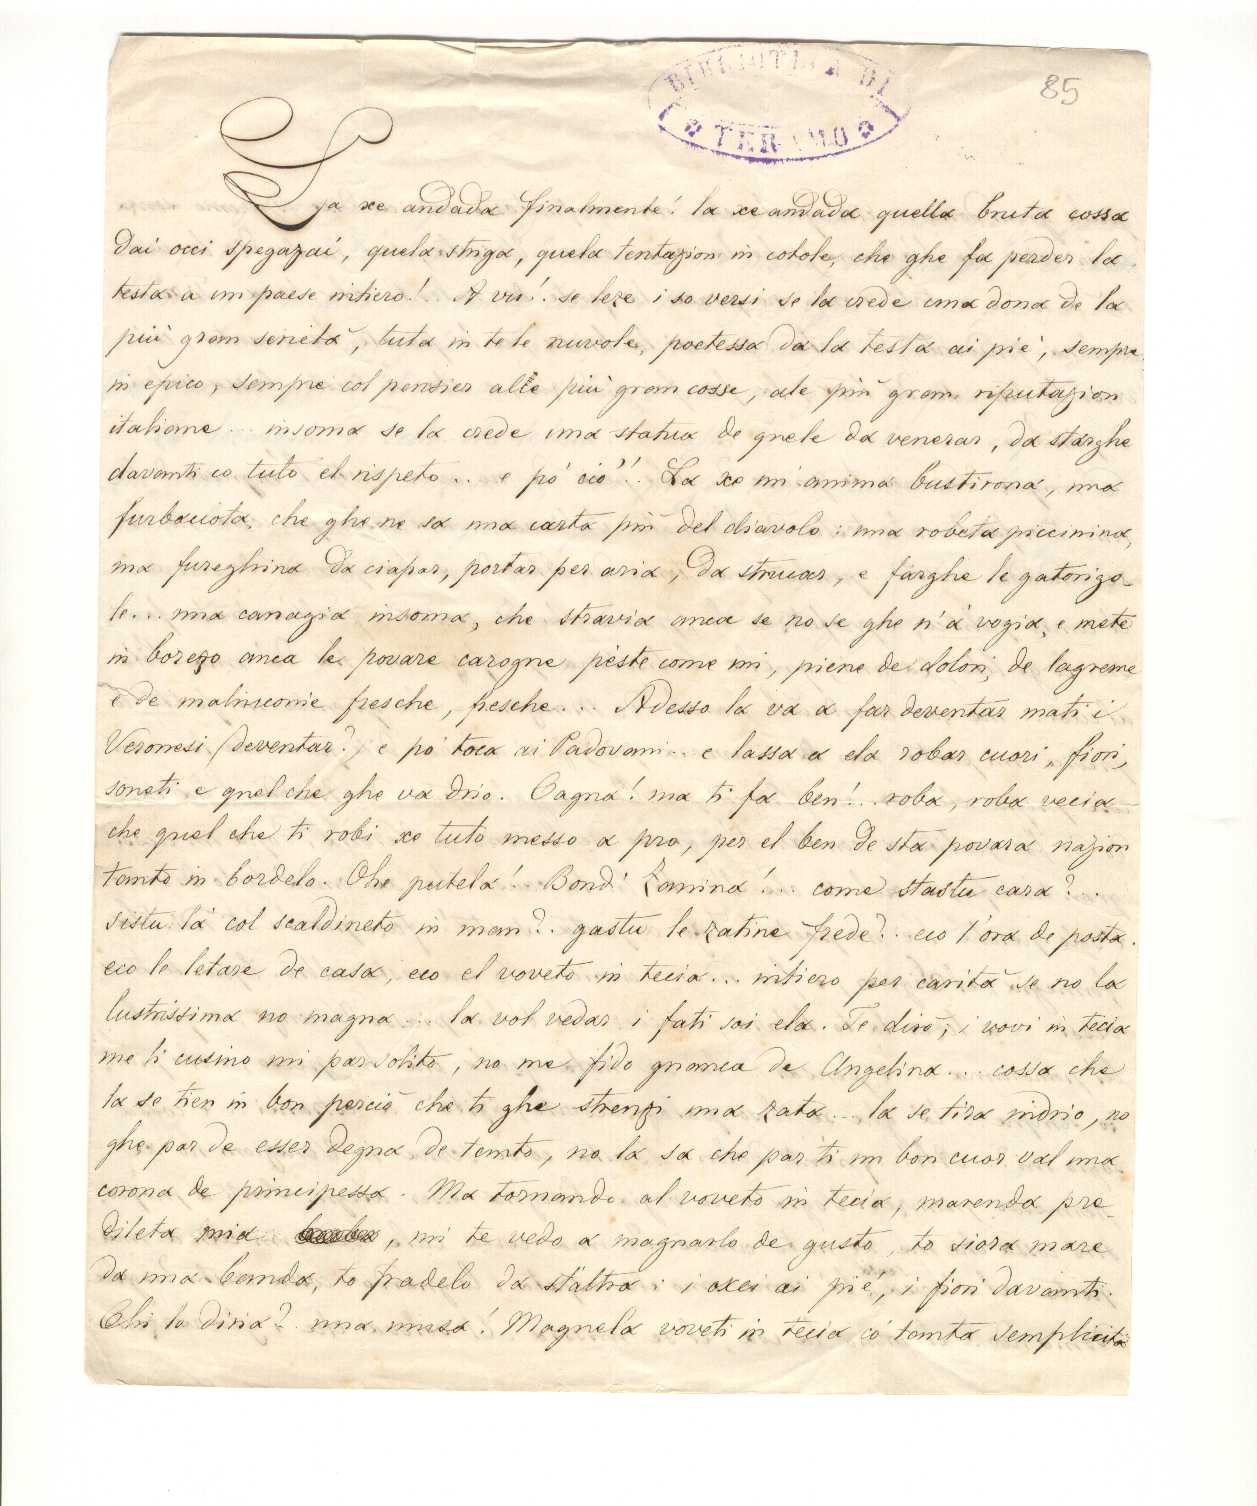 85
BIBLIOTECA DI
TERAMO
La xe andada finalmente! la xe andada quella bruta cossa
dai occi spegazai, quela striga, quela tentazion in cotole, che ghe fa perder la
testa a un paese intiero!.. A vu!. se leze i so versi se la crede una dona de la
più gran serietà, tuta in te le nuvole, poetessa da la testa ai pie', sempre
in epico, sempre col pensier alle più gran cosse, ale più gran riputazion
italiane... insoma se la crede una statua de quele da venerar, da starghe
davanti co tuto el rispeto... e po' ciò'!. La xe un' anima bustirona, una
furbaciota, che ghe ne sa una carta più del diavolo: una robeta piccinina,
ma fureghina da ciapar, portar per aria, da strucar, e farghe le gatorigo-
le... una canagia insoma, che stravia anca se no se ghe n'à vogia, e mete
in borezo anca le povare carogne peste come mi, piene de dolori, de lagreme
e de malinconie fresche, fresche... Adesso la va a far deventar mati i
Veronesi (deventar?) e po' toca ai Padovani... e lassa a ela robar cuori, fiori,
soneti e quel che ghe va drio. Cagna! ma ti fa ben!.. roba, roba vecia
che quel che ti robi xe tuto messo a pro, per el ben de sta povara nazion
tanto in bordelo. Ohe putela!.. Bondì Zanina!... come stastu cara?..
sistu là col scaldineto in man?. gastu le zatine frede?.. eco l'ora de posta.
eco le letare de casa, eco el voveto in tecia... intiero per carità se no la
lustrissima no magna... la vol vedar i fati soi ela. Te dirò, i vovi in tecia
me li cusino mi par solito, no me fido gnanca de Angelina... cossa che
la se tien in bon perciò che ti ghe strenzi una zata... la se tira indrio, no
ghe par de esser degna de tanto, no la sa che par ti un bon cuor val una
corona de principessa. Ma tornando al voveto in tecia, marenda pre-
dileta mia, mi te vedo a magnarlo de gusto, to siora mare
da una banda, to fradelo da st'altra: i oxei ai pie', i fiori davanti.
Chi lo diria?.. una musa! Magnela voveti in tecia co' tanta semplicità